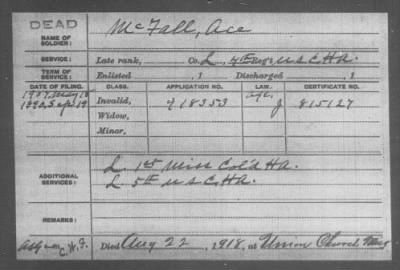 DEAD
NAME OF SOLDIER: McFall, Ace
SERVICE: Late rank, Co. L, 4th Reg't U.S.C.H.A.
TERM OF SERVICE: Enlisted , 1 Discharged , 1
DATE OF FILING. CLASS. APPLICATION NO. LAW. CERTIFICATE NO.
1907, May
1890, Sep. 19 Invalid, 918353 J 815127
Widow,
Minor,
ADDITIONAL SERVICES: L. 1st Miss Col'd H.A.
L 5th U.S.C.H.A.
REMARKS:
C.W.F. Died Aug 22, 1918, at Union Church, Miss